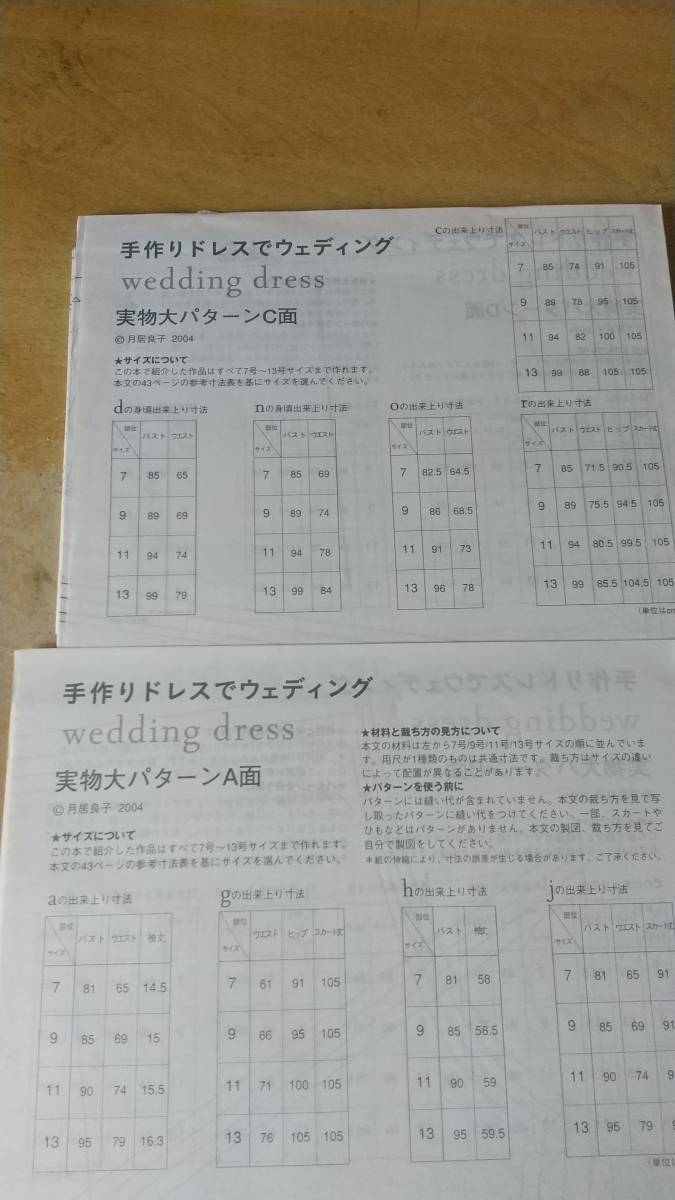 手作りドレスでウェディング
wedding dress
実物大パターンC面
© 月居良子 2004
★サイズについて
この本で紹介した作品はすべて7号〜13号サイズまで作れます。
本文の43ページの参考寸法表を基にサイズを選んでください。
cの出来上り寸法
部位 サイズ バスト ウエスト ヒップ スカート丈
7 85 74 91 105
9 89 78 95 105
11 94 82 100 105
13 99 88 105 105
dの身頃出来上り寸法
部位 サイズ バスト ウエスト
7 85 65
9 89 69
11 94 74
13 99 79
nの身頃出来上り寸法
部位 サイズ バスト ウエスト
7 85 69
9 89 74
11 94 78
13 99 84
oの出来上り寸法
部位 サイズ バスト ウエスト
7 82.5 64.5
9 86 68.5
11 91 73
13 96 78
rの出来上り寸法
部位 サイズ バスト ウエスト ヒップ スカート丈
7 85 71.5 90.5 105
9 89 75.5 94.5 105
11 94 80.5 99.5 105
13 99 85.5 104.5 105
(単位はcm
手作りドレスでウェディング
wedding dress
実物大パターンA面
© 月居良子 2004
★サイズについて
この本で紹介した作品はすべて7号〜13号サイズまで作れます。
本文の43ページの参考寸法表を基にサイズを選んでください。
★材料と裁ち方の見方について
本文の材料は左から7号/9号/11号/13号サイズの順に並んでいま
す。用尺が1種類のものは共通寸法です。裁ち方はサイズの違い
によって配置が異なることがあります。
★パターンを使う前に
パターンには縫い代が含まれていません。本文の裁ち方を見て写
し取ったパターンに縫い代をつけてください。一部、スカートや
ひもなどはパターンがありません。本文の製図、裁ち方を見てご
自分で製図をしてください。
＊紙の伸縮により、寸法の誤差が生じる場合があります。ご了承ください。
aの出来上り寸法
部位 サイズ バスト ウエスト 袖丈
7 81 65 14.5
9 85 69 15
11 90 74 15.5
13 95 79 16.3
gの出来上り寸法
部位 サイズ ウエスト ヒップ スカート丈
7 61 91 105
9 66 95 105
11 71 100 105
13 76 105 105
hの出来上り寸法
部位 サイズ バスト 袖丈
7 81 58
9 85 58.5
11 90 59
13 95 59.5
jの出来上り寸法
部位 サイズ バスト ウエスト スカート丈
7 81 65 91
9 85 69 91
11 90 74 9
13 95 79
(単位は